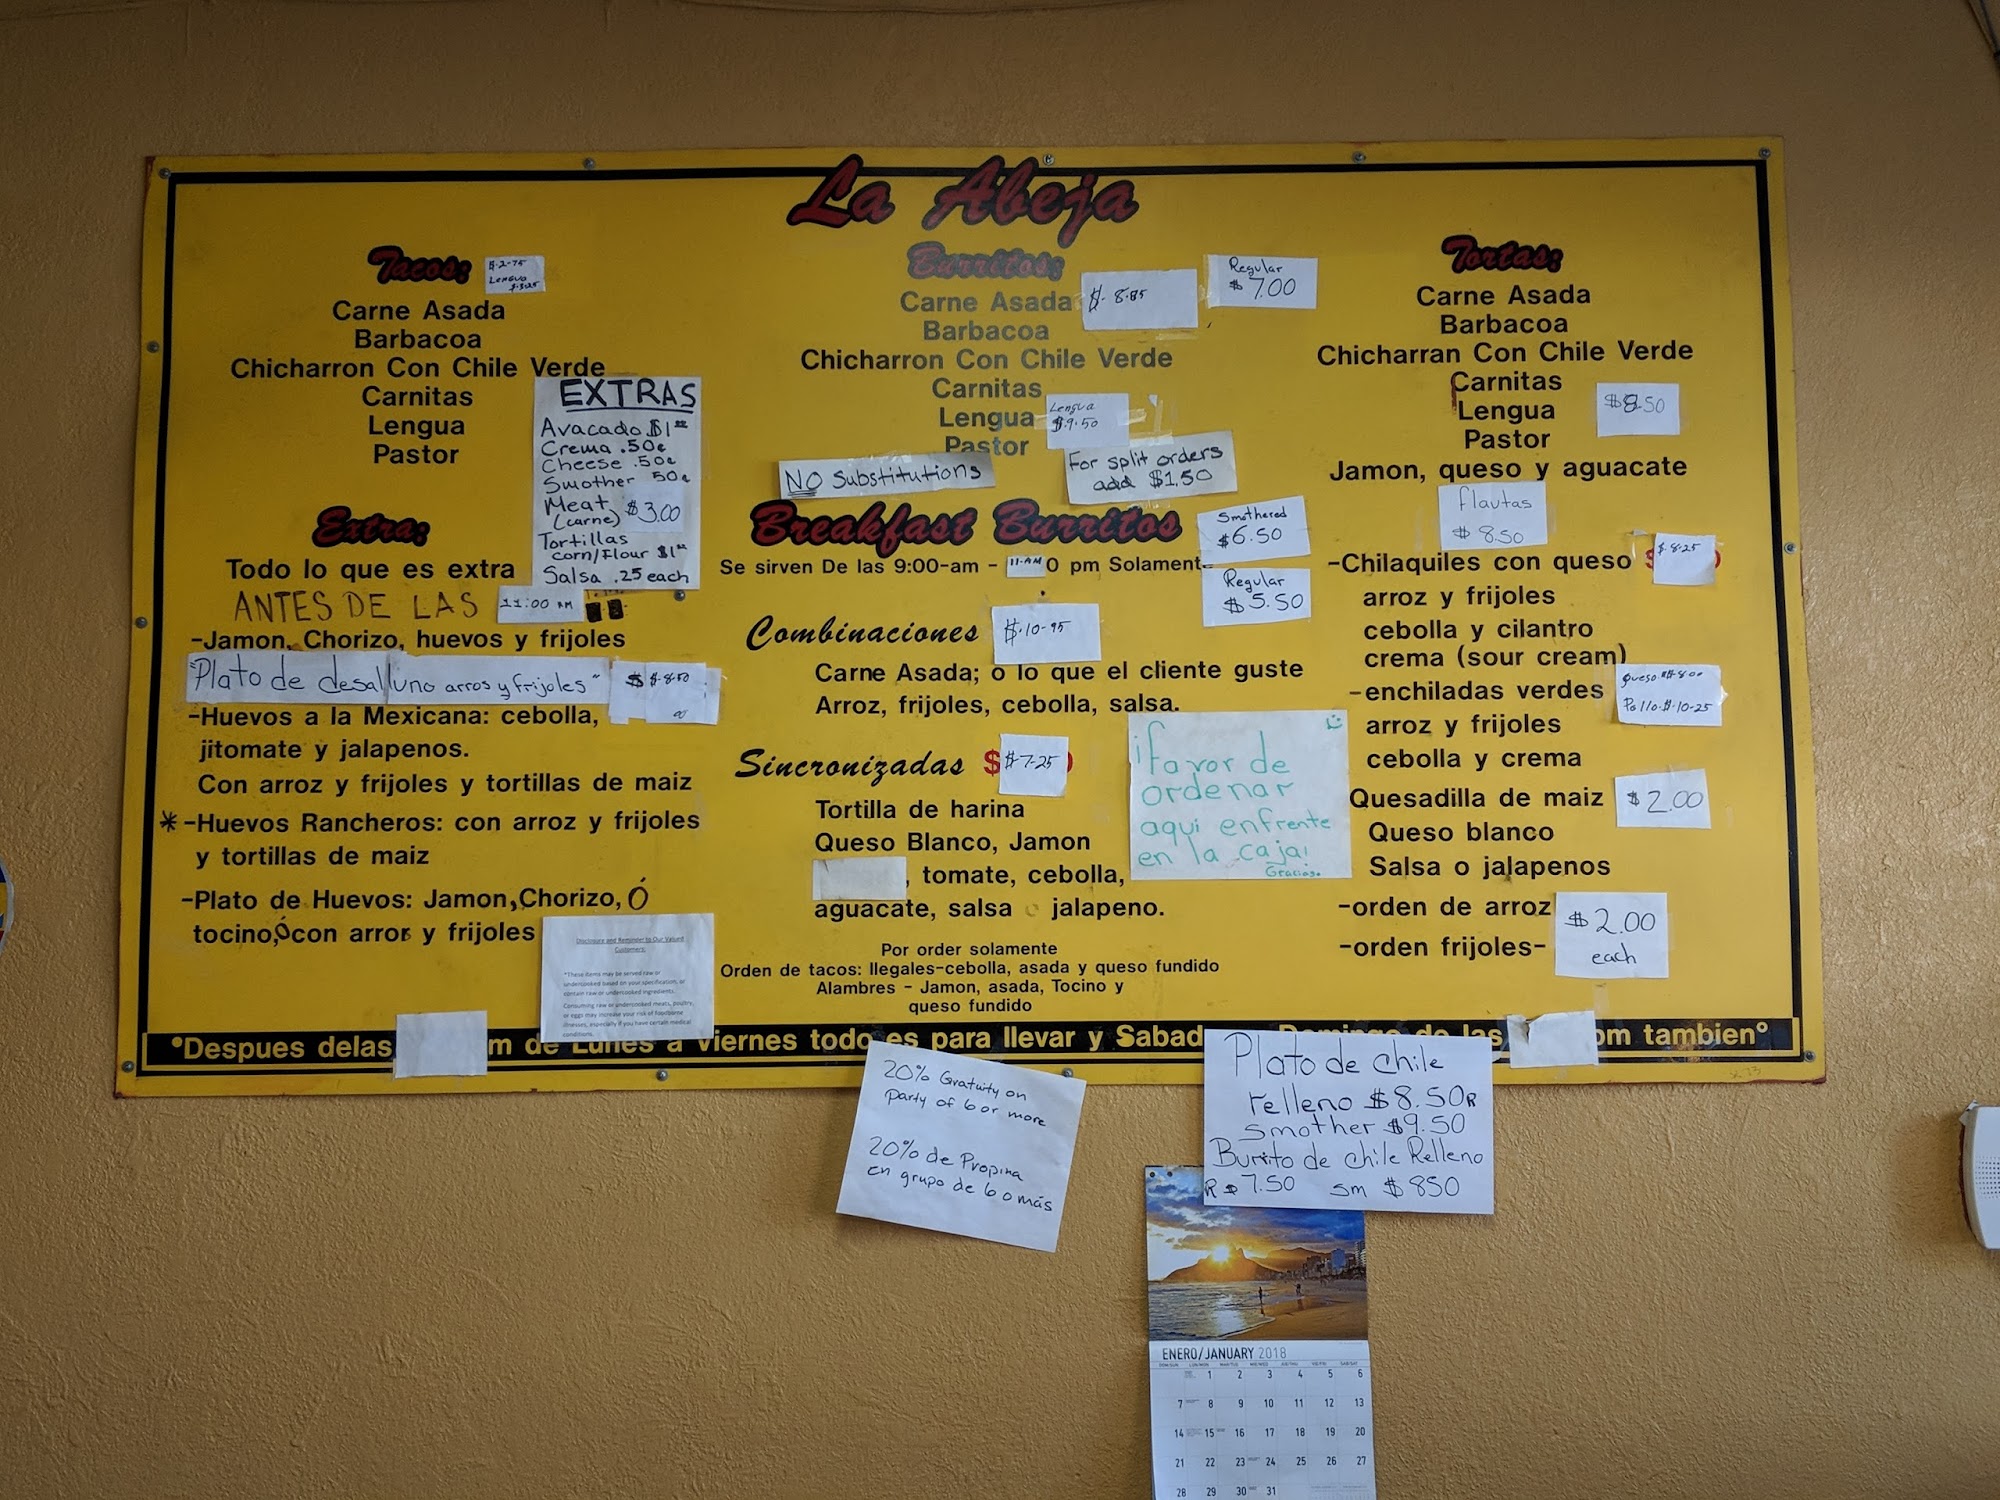 La Abeja
Tacos:
$2-75
Lengua
Carne Asada
Barbacoa
Chicharron Con Chile Verde
Carnitas
Lengua
Pastor
EXTRAS
Avacado $1⁰⁰
Crema .50¢
Cheese .50¢
Smother 50¢
Meat (carne) $3.00
Tortillas
corn/flour $1⁰⁰
Salsa .25 each
Extra:
Todo lo que es extra
ANTES DE LAS 11:00 AM
-Jamon, Chorizo, huevos y frijoles
"Plato de desalluno arros y frijoles" $ $-8.50
-Huevos a la Mexicana: cebolla,
jitomate y jalapenos.
Con arroz y frijoles y tortillas de maiz
*-Huevos Rancheros: con arroz y frijoles
y tortillas de maiz
-Plato de Huevos: Jamon, Chorizo, Ó
tocino, ó con arroz y frijoles
Disclosure and Reminder to Our Valued
Customers:
*These items may be served raw or
undercooked based on your specification, or
contain raw or undercooked ingredients.
Consuming raw or undercooked meats, poultry,
or eggs may increase your risk of foodborne
illnesses, especially if you have certain medical
conditions.
Burritos:
Regular
$7.00
Carne Asada $-8.85
Barbacoa
Chicharron Con Chile Verde
Carnitas
Lengua
Lengua
$9.50
Pastor
NO Substitutions
For split orders
add $1.50
Breakfast Burritos
Smothered
$6.50
Se sirven De las 9:00-am - 11-AM 0 pm Solament
Regular
$5.50
Combinaciones $-10-95
Carne Asada; o lo que el cliente guste
Arroz, frijoles, cebolla, salsa.
Sincronizadas $ $-7-25
Tortilla de harina
Queso Blanco, Jamon
, tomate, cebolla,
aguacate, salsa o jalapeno.
¡favor de
ordenar
aqui enfrente
en la caja!
Gracias
Por order solamente
Orden de tacos: Ilegales-cebolla, asada y queso fundido
Alambres - Jamon, asada, Tocino y
queso fundido
Tortas:
Carne Asada
Barbacoa
Chicharran Con Chile Verde
Carnitas
Lengua $8.50
Pastor
Jamon, queso y aguacate
flautas
$8.50
-Chilaquiles con queso $-8-25
arroz y frijoles
cebolla y cilantro
crema (sour cream)
-enchiladas verdes
Queso $8.00
Pollo-$-10-25
arroz y frijoles
cebolla y crema
Quesadilla de maiz $2.00
Queso blanco
Salsa o jalapenos
-orden de arroz
-orden frijoles-
$2.00
each
°Despues delas m de Lunes a Viernes todo es para llevar y Sabad Domingo de las pm tambien°
20% Gratuity on
party of 6 or more
20% de Propina
en grupo de 6 o más
Plato de chile
relleno $8.50 R
smother $9.50
Burrito de chile Relleno
R $7.50 sm $850
ENERO/JANUARY 2018
DOM/SUN LUN/MON MAR/TUE MIE/WED JUE/THU VIE/FRI SAB/SAT
1 2 3 4 5 6
7 8 9 10 11 12 13
14 15 16 17 18 19 20
21 22 23 24 25 26 27
28 29 30 31